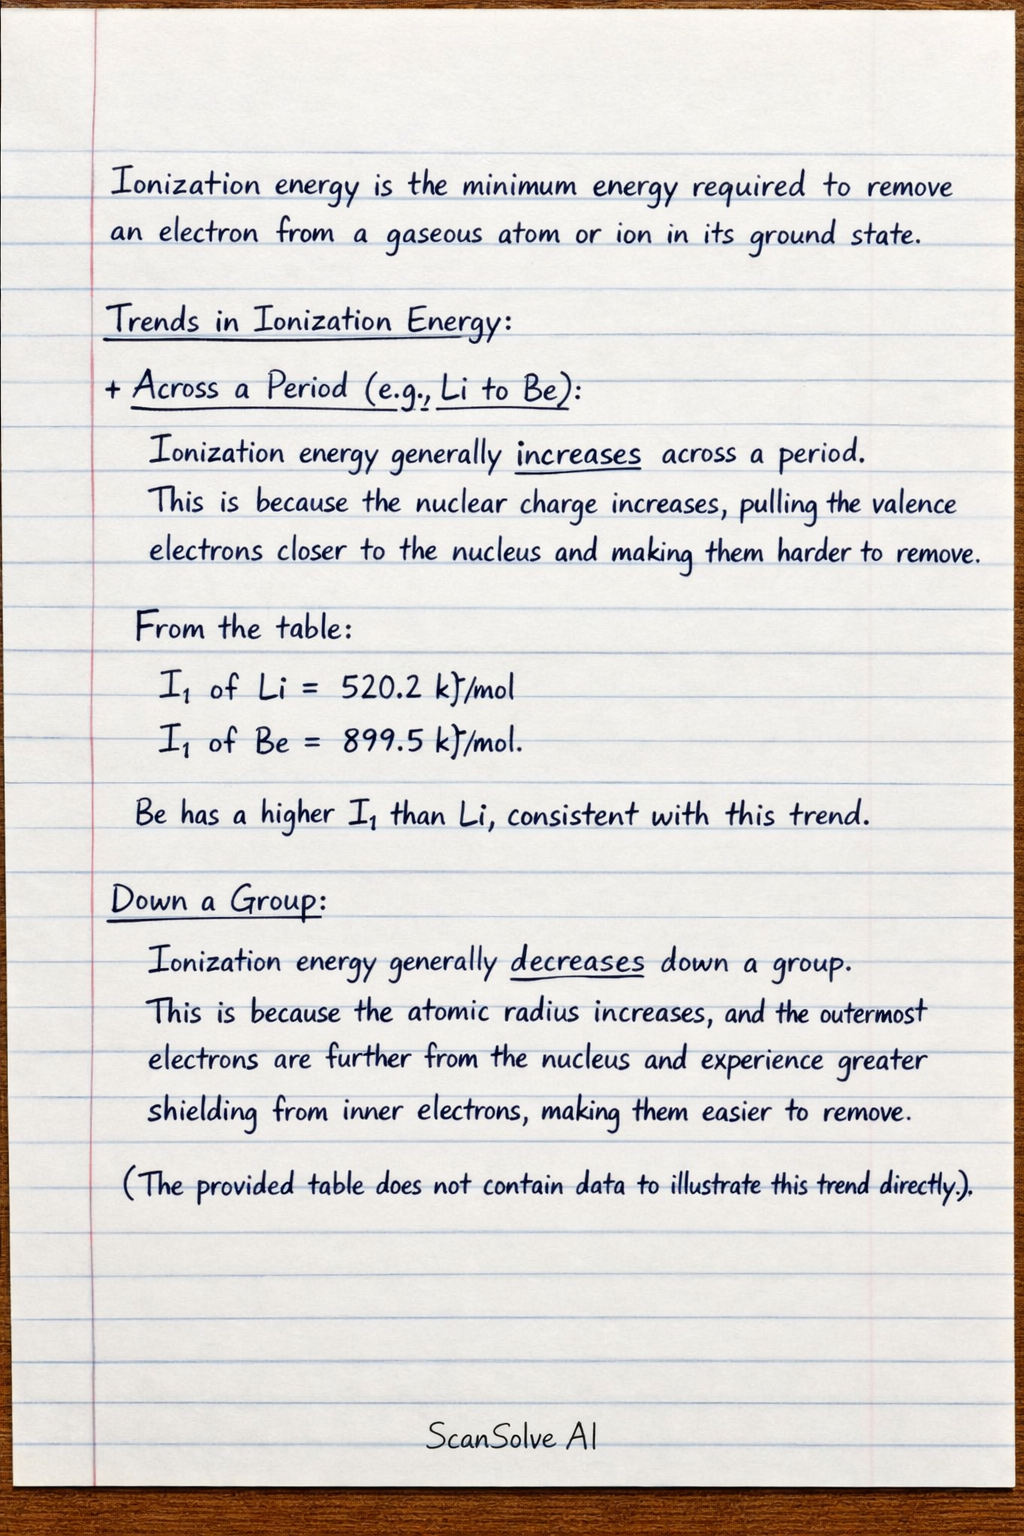 Ionization energy is the minimum energy required to remove
an electron from a gaseous atom or ion in its ground state.
Trends in Ionization Energy:
+ Across a Period (e.g., Li to Be):
Ionization energy generally increases across a period.
This is because the nuclear charge increases, pulling the valence
electrons closer to the nucleus and making them harder to remove.
From the table:
I₁ of Li = 520.2 kJ/mol
I₁ of Be = 899.5 kJ/mol.
Be has a higher I₁ than Li, consistent with this trend.
Down a Group:
Ionization energy generally decreases down a group.
This is because the atomic radius increases, and the outermost
electrons are further from the nucleus and experience greater
shielding from inner electrons, making them easier to remove.
(The provided table does not contain data to illustrate this trend directly.).
ScanSolve AI